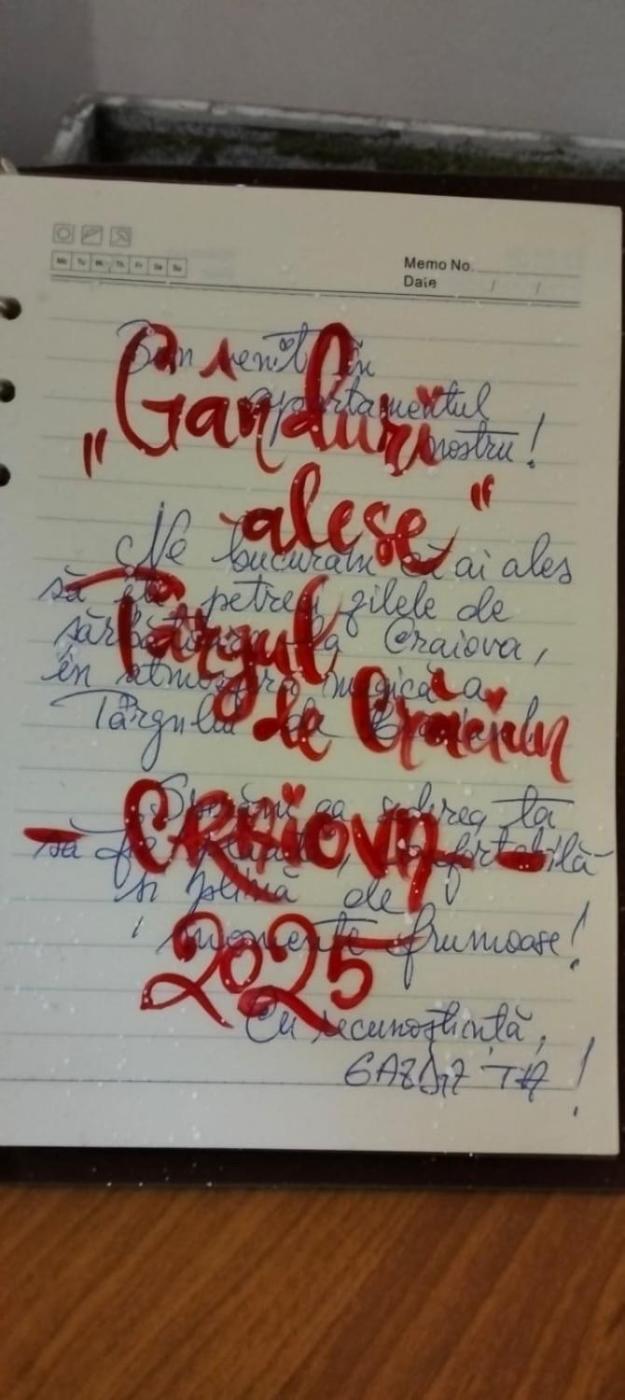 Memo No.
Date / /
Mo Tu We Th Fr Sa Su
Bun venit în
apartamentul
nostru!
Ne bucurăm că ai ales
să îți petreci zilele de
sărbătoare la Craiova,
în atmosfera magică a
Târgului de Crăciun!
Sperăm ca șederea ta
să fie plăcută, confortabilă
și plină de
momente frumoase!
Cu recunoștință,
GAZDA TA!
"Gânduri
alese"
Târgul
de Crăciun
- CRAIOVA -
2025